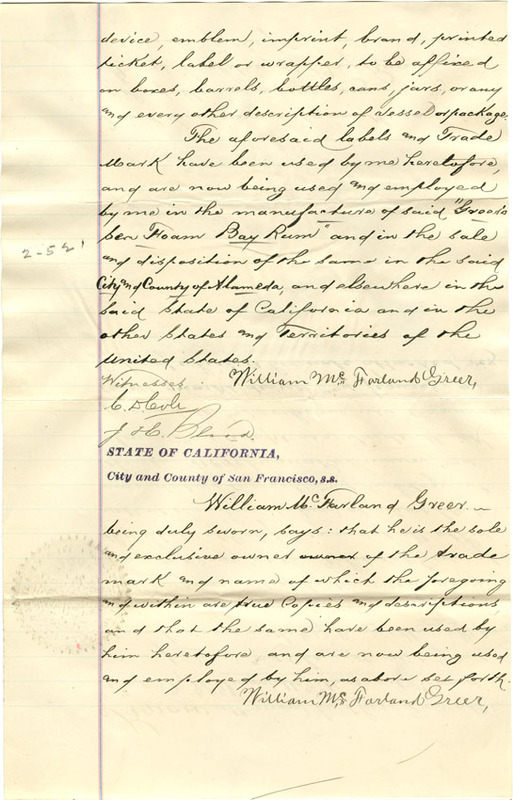 device, emblem, imprint, brand, printed
ticket, label or wrapper, to be affixed
on boxes, barrels, bottles, cans, jars, or any
and every other description of vessel or package.
The aforesaid labels and Trade
Mark have been used by me heretofore,
and are now being used and employed
by me in the manufacture of said "Greer's
Sea Foam Bay Rum" and in the sale
2-521
and disposition of the same in the said
City and County of Alameda, and elsewhere in the
said State of California and in the
other States and Territories of the
United States.
Witnesses William Mc Farland Greer,
C. D. Cole
J. H.
STATE OF CALIFORNIA,
City and County of San Francisco, s.s.
William Mc Farland Greer
being duly sworn, says: that he is the sole
and exclusive owner owner of the trade
mark and name of which the foregoing
and within are true Copies and descriptions
and that the same have been used by
him heretofore and are now being used
and employed by him, as above set forth.
William Mc Farland Greer,